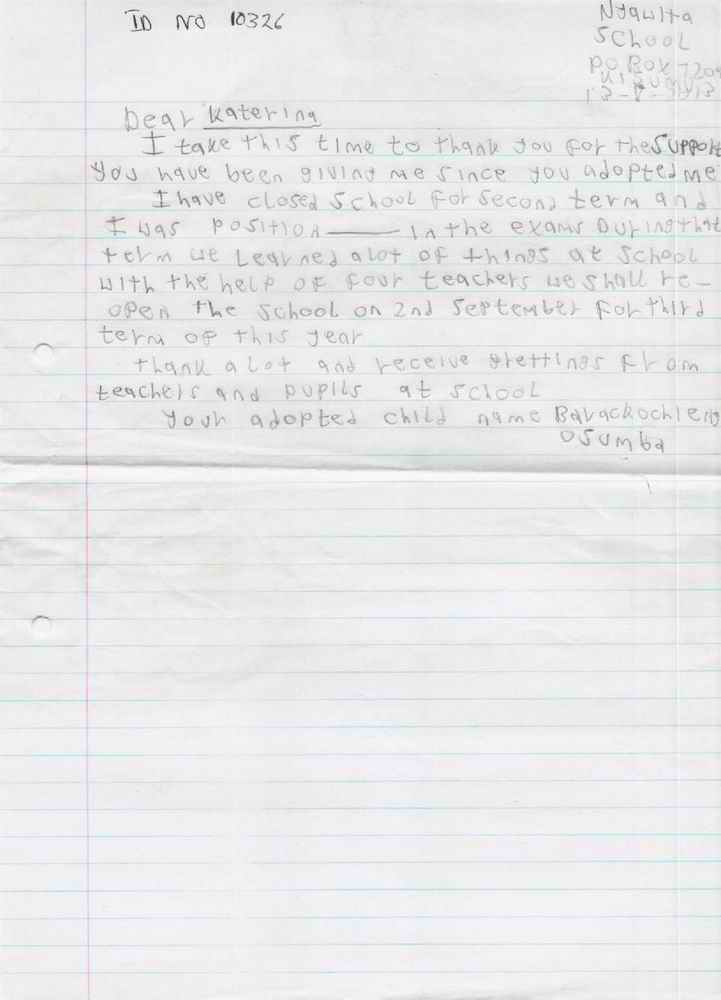 ID NO 10326
Nyawita
School
PO Box 7209
Kisumu
Dear Katerina
I take this time to thank you for the support
you have been giving me since you adopted me
I have closed school for second term and
I was position ——— in the exams During that
term we Learned alot of things at school
with the help of four teachers we shall re-
open the school on 2nd September for third
term of this year
thank a lot and receive grettings from
teachers and pupils at school
your adopted child name Barackochieng
Osumba